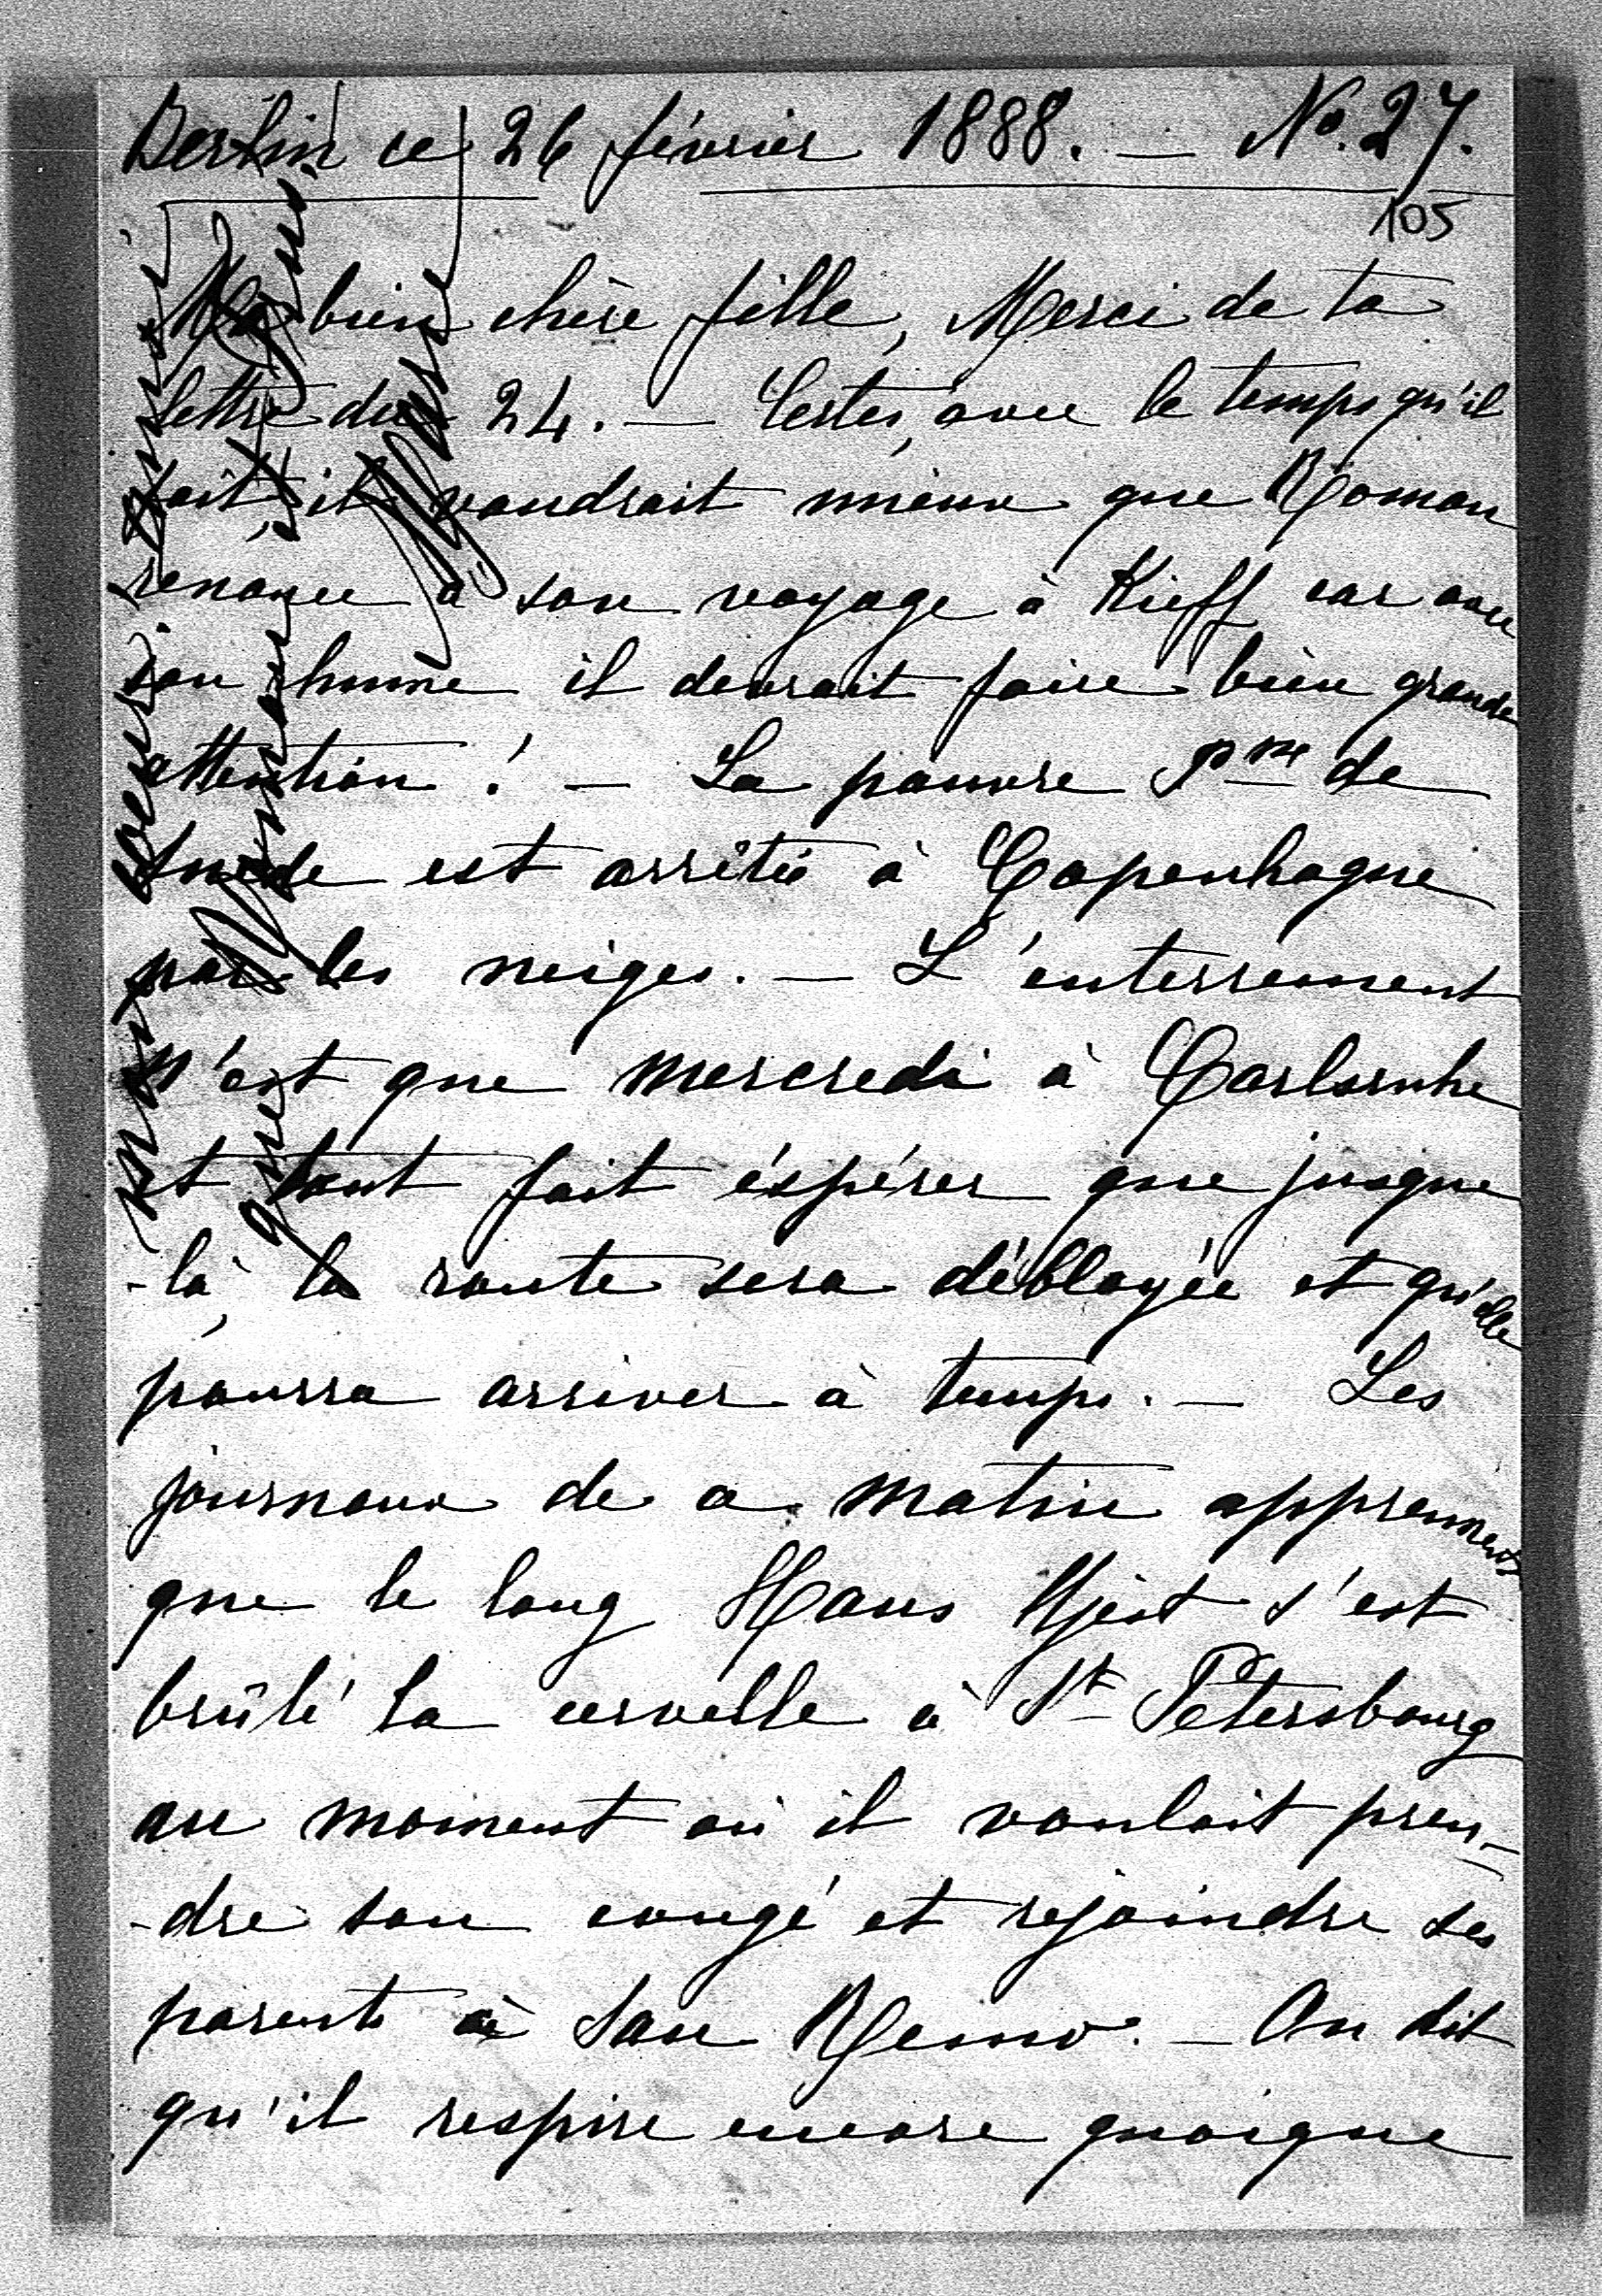 Berlin ce 26 février 1888. — No. 27.
105
Ma bien chère fille, Merci de ta
lettre du 24. — Certes, avec le temps qu'il
fait, il vaudrait mieux que Roman
renonce à son voyage à Kieff car avec
son rhume il devrait faire bien grande
attention! — La pauvre Psse de
Suède est arrêtée à Copenhague
par les neiges. — L'enterrement
n'est que mercredi à Carlsruhe
et tout fait éspérer que jusque
-là, la route sera déblayée et qu'elle
pourra arriver à temps. — Les
journaux de ce matin apprennent
que le long Hans s'est
brûlé la cervelle à St Pétersbourg
au moment où il voulait pren-
-dre son congé et rejoindre ses
parents à San Remo. — On dit
qu'il respire encore quoique